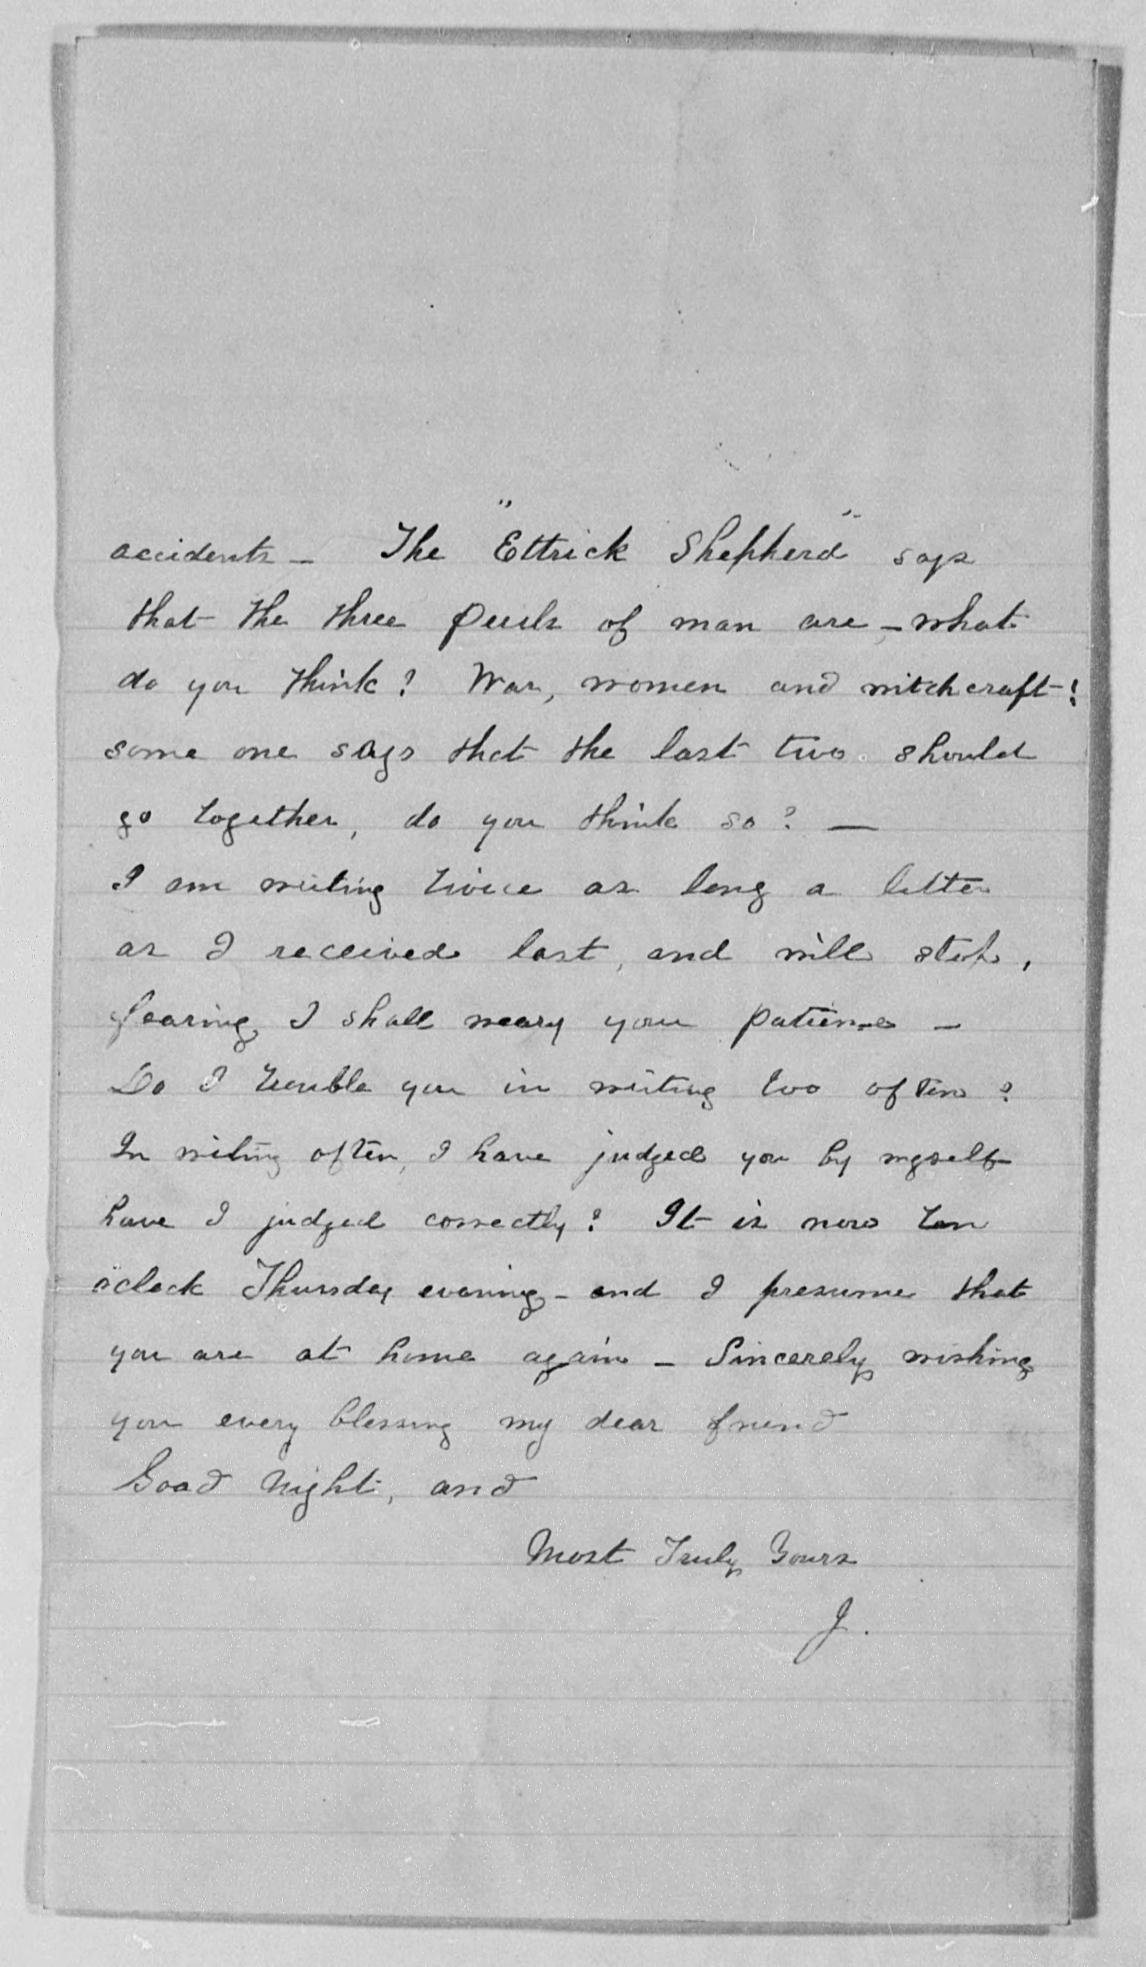 accidents - The "Ettrick Shepherd" says
that the three perils of man are - what
do you think? War, women and witchcraft!
some one says that the last two should
go together, do you think so? —
I am writing twice as long a letter
as I received last, and will stop,
fearing I shall weary your patience -
Do I trouble you in writing too often?
In writing often, I have judged you by myself
have I judged correctly? It is now ten
o'clock Thursday evening - and I presume that
you are at home again - Sincerely wishing
you every blessing my dear friend
Good night, and
Most Truly Yours
J.